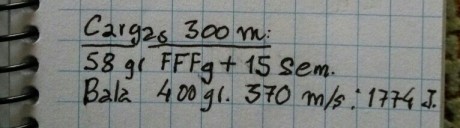 Cargas 300 m:
58 gr FFFg + 15 Sem.
Bala 400 gr. 370 m/s: 1774 J.